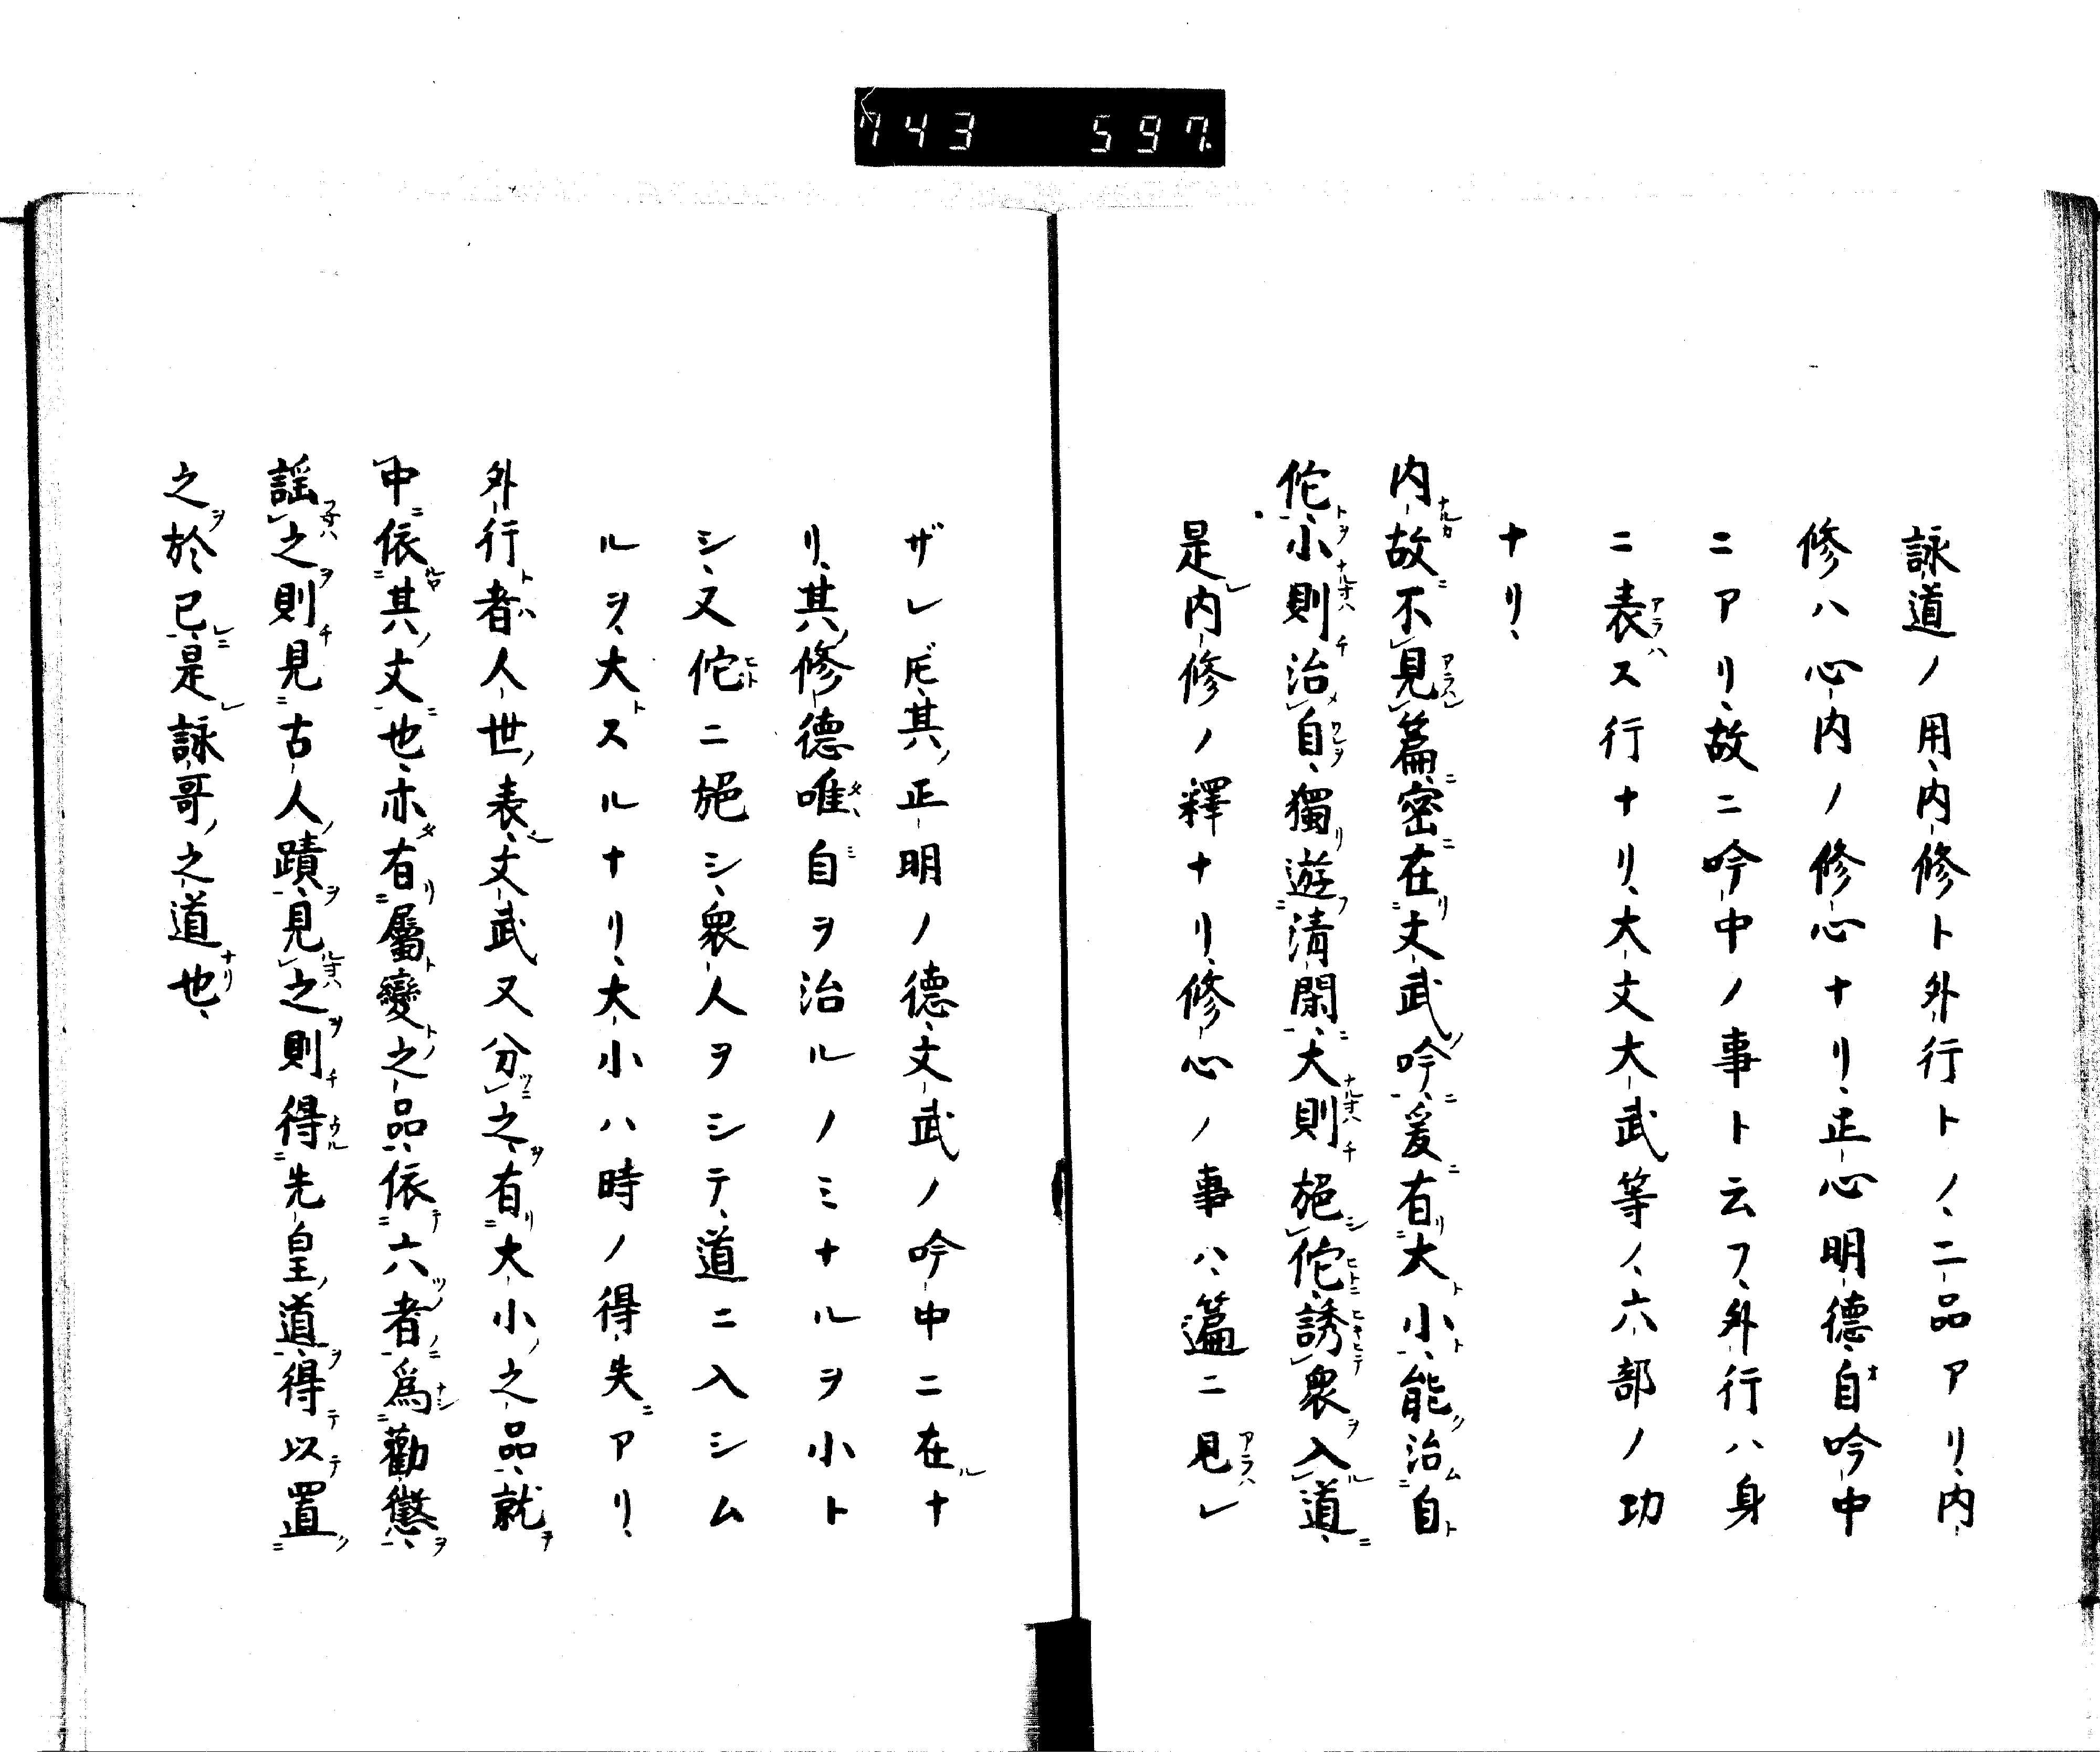 743 597.
詠道ノ用、内修ト外行トノ、二品アリ、内
修ハ心内ノ修心ナリ、正心明德、自吟中
ニアリ、故ニ吟中ノ事ト云フ、外行ハ身
ニ表ス行ナリ、大文大武等ノ、六部ノ功
ナリ、
内、故不見篇、密在文武吟、爰有大小、能治自
佗、小則治自、獨遊淸閑、大則施佗、誘衆入道、
是内修ノ釋ナリ、修心ノ事ハ、篇ニ見レ
ザレドモ、其正明ノ德、文武ノ吟中ニ在ナ
リ、其修德唯自ヲ治ルノミナルヲ小ト
シ、又佗ニ施シ、衆人ヲシテ、道ニ入シム
ルヲ、大スルナリ、大小ハ時ノ得失アリ、
外行者人世表、文武又分之、有大小之品、就
中依其文也、亦有屬變之品、依六者爲勸懲、
謡之則見古人蹟、見之則得先皇道、得以置
之於己、是詠哥之道也、